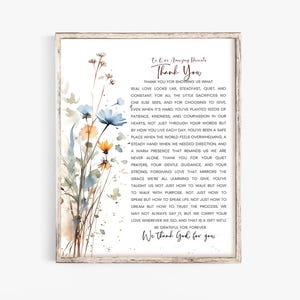 To Our Amazing Parents
Thank You
THANK YOU FOR SHOWING US WHAT
REAL LOVE LOOKS LIKE, STEADFAST, QUIET, AND
CONSTANT. FOR ALL THE LITTLE SACRIFICES NO
ONE ELSE SEES, AND FOR CHOOSING TO GIVE,
EVEN WHEN IT'S HARD. YOU'VE PLANTED SEEDS OF
PATIENCE, KINDNESS, AND COMPASSION IN OUR
HEARTS, NOT JUST THROUGH YOUR WORDS BUT
BY HOW YOU LIVE EACH DAY. YOU'VE BEEN A SAFE
PLACE WHEN THE WORLD FEELS OVERWHELMING, A
STEADY HAND WHEN WE NEEDED DIRECTION, AND
A WARM PRESENCE THAT REMINDS US WE ARE
NEVER ALONE. THANK YOU FOR YOUR QUIET
PRAYERS, YOUR GENTLE GUIDANCE, AND YOUR
STRONG, FORGIVING LOVE THAT MIRRORS THE
GRACE WE'RE ALL LEARNING TO GIVE. YOU'VE
TAUGHT US NOT JUST HOW TO WALK BUT HOW
TO WALK WITH PURPOSE. NOT JUST HOW TO
SPEAK BUT HOW TO SPEAK LIFE. NOT JUST HOW TO
DREAM BUT HOW TO TRUST THE PROCESS. WE
MAY NOT ALWAYS SAY IT, BUT WE CARRY YOUR
LOVE WHEREVER WE GO, AND THAT IS A GIFT WE'LL
BE GRATEFUL FOR, FOREVER.
We thank God for you